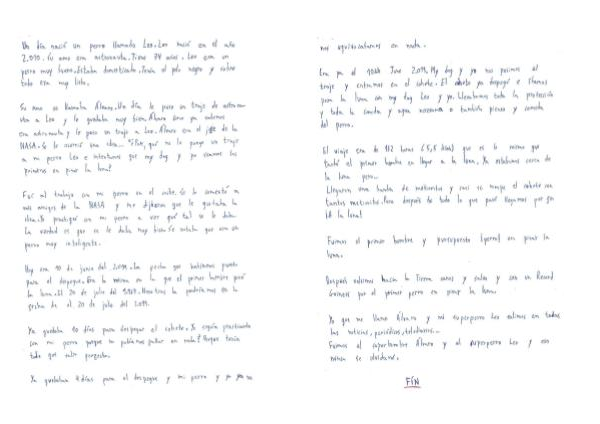 Un día nació un perro llamado Leo. Leo nació en el año
2.010. Su amo era astronauta. Tiene 34 años. Leo era un
perro muy bueno. Estaba domesticado. Tenía el pelo negro y sobre
todo era muy listo.
Su amo se llamaba Álvaro. Un día le puso un traje de astronau-
ta a Leo y le quedaba muy bien. Álvaro como ya sabemos
era astronauta y le puso un traje a Leo. Álvaro era el jefe de la
NASA. Se le ocurrió una idea... ¿Por qué no le pongo un traje
a mi perro Leo e intentamos que my dog y yo seamos los
primeros en pisar la luna?
Fui al trabajo con mi perro en el coche. Se lo comenté a
mis amigos de la NASA y me dijeron que le gustaba la
idea. Lo practiqué con mi perro a ver qué tal se le daba.
La verdad es que se le daba muy bien. Se notaba que era un
perro muy inteligente.
Hoy era 10 de junio del 2.019. La fecha que habíamos puesto
para el despegue. Era la misma en la que el primer hombre pisó
la luna. El 20 de julio del 1969. Nosotros la pondríamos en la
fecha de el 20 de julio del 2019.
Ya quedaba 10 días para despegar el cohete. Yo seguía practicando
con mi perro porque no podíamos fallar en nada. Porque tenía
todo que salir perfecto.
Ya quedaban 4 días para el despegue y mi perro y yo no
nos equivocábamos en nada.
Era ya el June 2019. My dog y yo nos pusimos el
traje y entramos en el cohete. El cohete ya despegó e íbamos
para la luna con my dog Leo y yo. Llevábamos toda la protección
y toda la comida y agua necesaria o también pienso y comida
del perro.
El viaje era de 102 horas que es lo mismo que
tardó el primer hombre en llegar a la luna. Ya estábamos cerca de
la luna pero...
Llegaron una banda de meteoritos y casi se rompe el cohete con
tantos meteoritos. Pero después de todo lo que pasó llegamos por fin
¡A la luna!
Fuimos el primer hombre y por supuesto (perro) en pisar la
luna.
Después volvimos hacia la Tierra sanos y salvos y con un Record
Guinness por el primer perro en pisar la luna.
Yo que me llamo Álvaro y mi superperro Leo salimos en todas
las noticias, periódicos, telediarios...
Fuimos el superhombre Álvaro y el superperro Leo y eso
nunca se olvidará.
FÍN